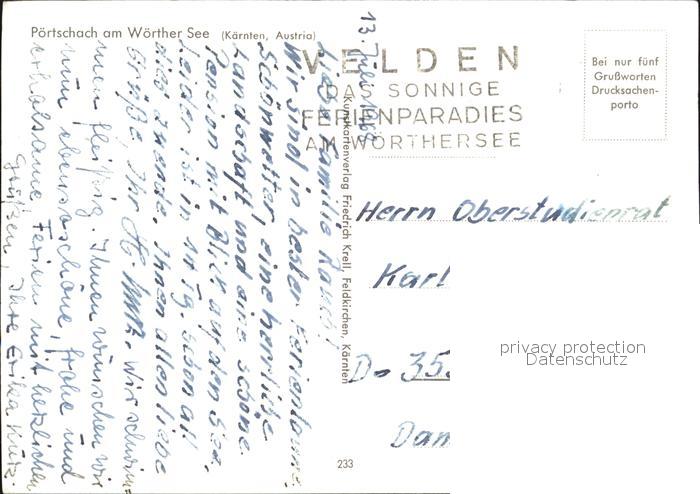 Pörtschach am Wörther See (Kärnten, Austria)
VELDEN
DAS SONNIGE
FERIENPARADIES
AM WÖRTHERSEE
Bei nur fünf
Grußworten
Drucksachen-
porto
13. Juli 1968
Liebe Familie Rauch!
Wir sind in bester Ferienlaune,
Schönwetter, eine herrliche
Landschaft und eine schöne
Pension mit Blick auf den See.
Leider ist in 14 Tg. schon alles
zu Ende. Ihnen allen liebe
Grüße, Ihr H. Wir schwim=
men fleißig. Ihnen wünschen wir
nun ebenso schöne, frohe und
erholsame Ferien mit herzlichen
Grüßen, Ihre Erika
Kunstkartenverlag Friedrich Krell, Feldkirchen, Kärnten
Herrn Oberstudienrat
Karl
D - 35
Dam
privacy protection
Datenschutz
233